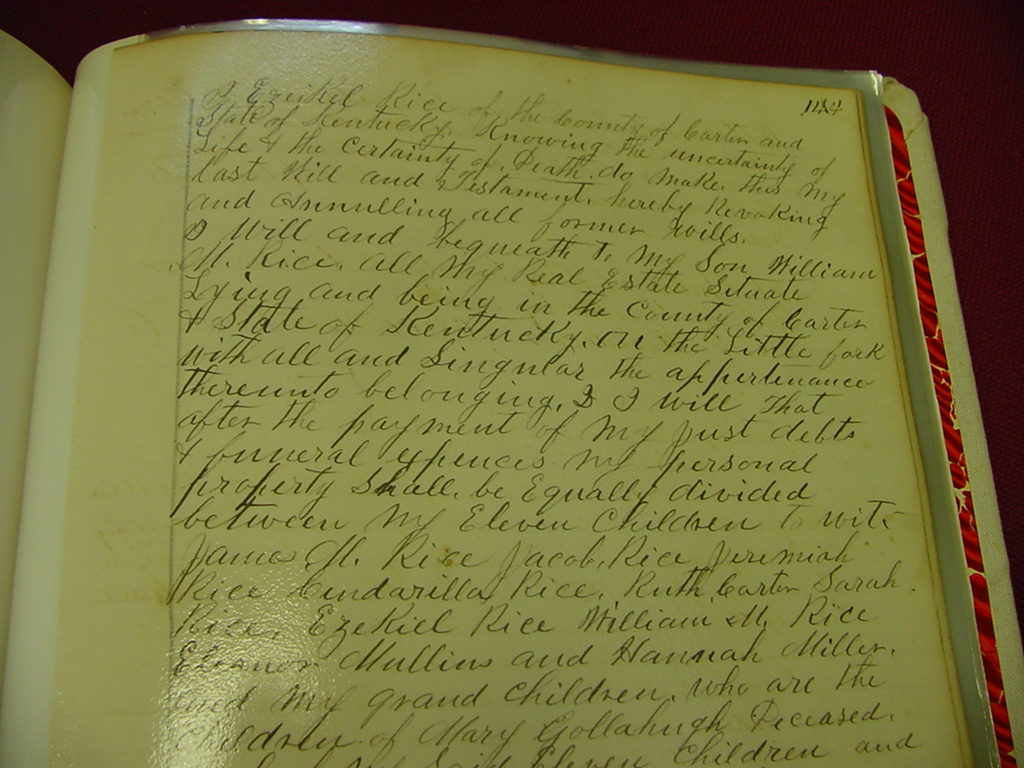 144
I Ezeikel Rice of the County of Carter and
State of Kentucky, Knowing the uncertainty of
Life & the certainty of Death, do make this My
last Will and Testament, hereby Revoking
and Annulling all former Wills.
I Will and bequeath to My Son William
M. Rice, all My Real Estate Situate
Lying and being in the County of Carter
& State of Kentucky, on the Little fork
With all and Singular the appertenance
thereunto belonging, I I will That
after the payment of My just debts
& funeral expences my personal
property Shall, be Equally divided
between My Eleven Children to wit,
James M. Rice Jacob, Rice Jeremiah
Rice Cindarilla Rice, Ruth Carter Sarah
Rice, Ezekiel Rice William M, Rice
Eleanor Mullins and Hannah Miller,
and My grand Children, who are the
Children of Mary Gollahugh Deceased,
Said Eleven Children and